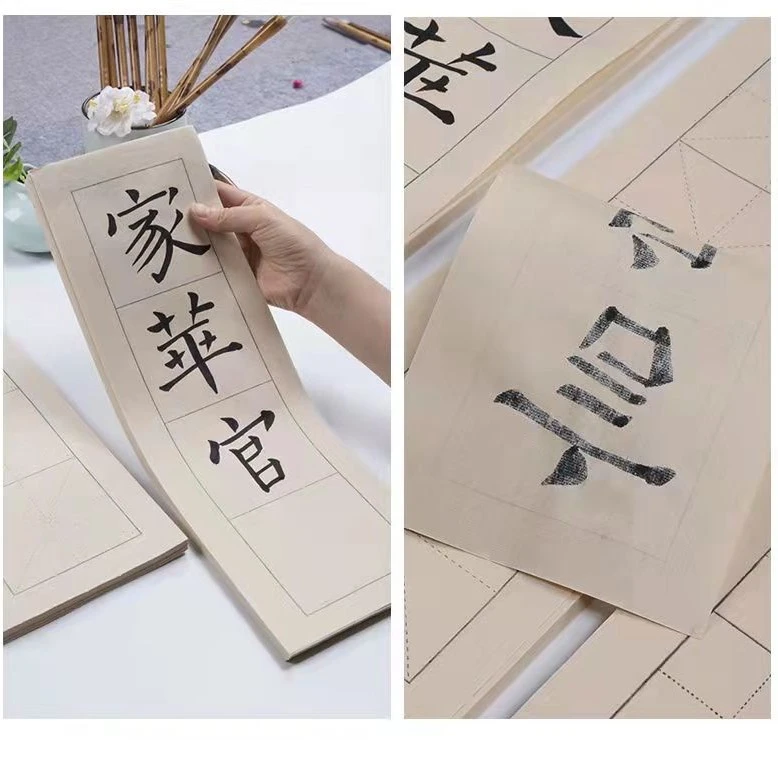 家華官
華
言